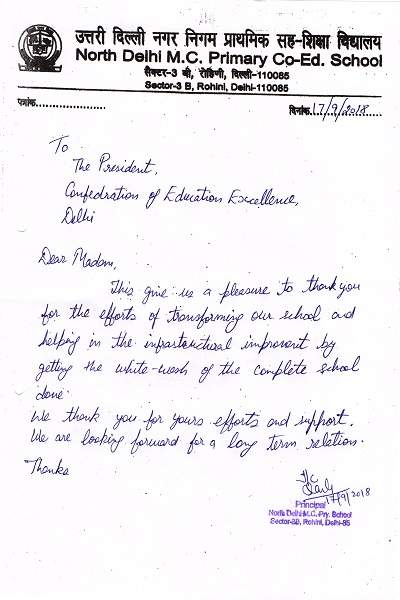 उत्तरी दिल्ली नगर निगम प्राथमिक सह-शिक्षा विद्यालय
North Delhi M.C. Primary Co-Ed. School
सैक्टर-3 बी, रोहिणी, दिल्ली-110085
Sector-3 B, Rohini, Delhi-110085
पत्रांक......................
दिनांक...17/9/2018
To
The President,
Confedration of Education Excellence,
Delhi
Dear Madam,
This give us a pleasure to thank you
for the efforts of transforming our school and
helping in the infrastructual improvent by
getting the white-wash of the complete school
done.
We thank you for yours efforts and support.
We are looking forward for a long term relation.
Thanks
17/9/2018
Principal
North Delhi M.C. Pry. School
Sector-3B, Rohini, Delhi-85